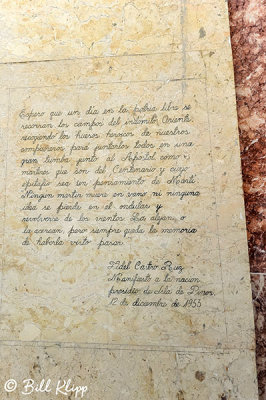 Espero que un día en la patria libre se
recorran los campos del indómito Oriente
recogiendo los huesos heroicos de nuestros
compañeros para juntarlos todos en una
gran tumba junto al Apóstol como
mártires que son del Centenario y cuyo
epitafio sea un pensamiento de Martí
Ningún mártir muere en vano ni ninguna
idea se pierde en el ondular y
revolverse de los vientos La alejan o
la acercan pero siempre queda la memoria
de haberla visto pasar
Fidel Castro Ruz
Manifiesto a la nación
presidio de Isla de Pinos
12 de diciembre de 1955
© Bill Klipp